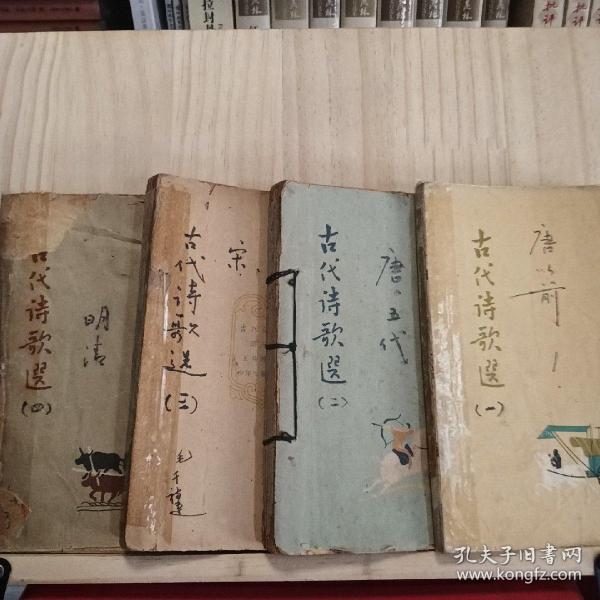 古代诗歌選
(四)
明清
古代诗歌选
(三)
宋
古代诗歌選
(二)
唐、五代
古代诗歌選
(一)
唐以前
孔夫子旧书网
www.kongfz.com